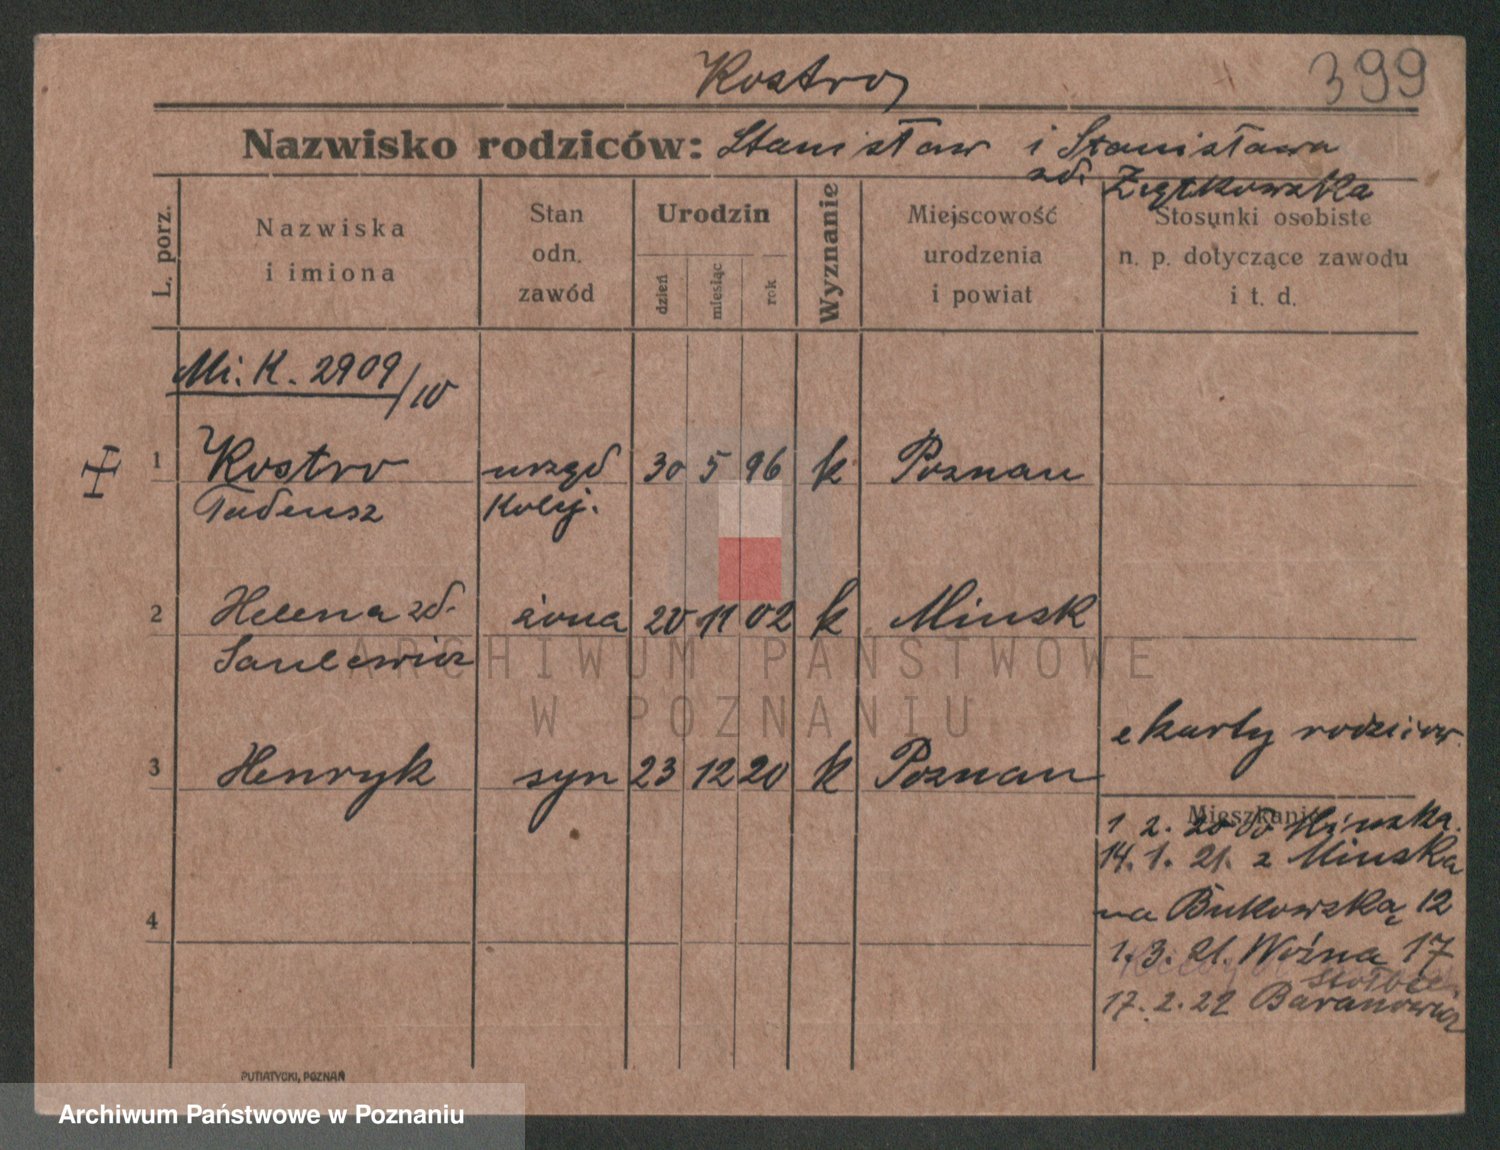 Kostro
399
Nazwisko rodziców: Stanisław i Stanisława
zd. Ziętkowska
L. porz.
Nazwiska
i imiona
Stan
odn.
zawód
Urodzin
dzień
miesiąc
rok
Wyznanie
Miejscowość
urodzenia
i powiat
Stosunki osobiste
n. p. dotyczące zawodu
i t. d.
Mi. K. 2909/IV
1 Kostro urzęd 30 5 96 k Poznan
Tadeusz Kolej.
2 Helena zd. żona 20 11 02 k Minsk
3 Henryk syn 23 12 20 k Poznan
z karty rodziców.
Mieszkanie
1 2. 20 do Mińska.
14. 1. 21. z Minska
na Bukowską 12
1. 3. 21. Woźna 17
17. 2. 22 Baranowicz
4
PUTIATYCKI, POZNAŃ
ARCHIWUM PAŃSTWOWE
W POZNANIU
Archiwum Państwowe w Poznaniu